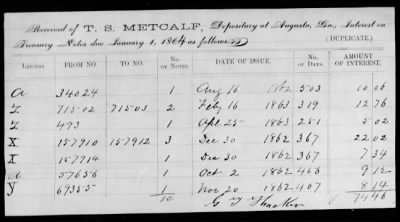 Received of T. S. METCALF, Depositary at Augusta, Ga., Interest on
Treasury Notes due January 1, 1864 as follows:
(DUPLICATE.)
LETTERS. FROM NO. TO NO. NO. of NOTES. DATE OF ISSUE. NO. of DAYS. AMOUNT OF INTEREST.
A 34024 1 Aug 16 1862 503 10 06
Z 71502 71503 2 Feby 16 1863 319 12.76
Z 493 1 Apl 25 1863 251 5.02
X 157910 157912 3 Dec 30 1862 367 22.02
X 157914 1 Dec 30 1862 367 7 34
A 57656 1 Oct 2 1862 456 9.12
Y 69355 1 Nov 20 1862 407 8 14
10 74 46